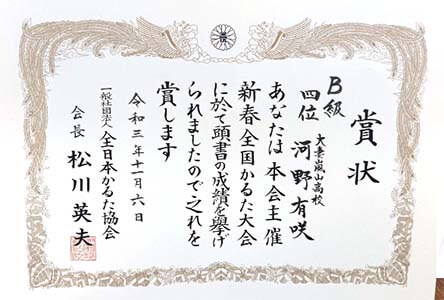 賞状
B級
四位
大妻嵐山高校
河野有咲
あなたは本会主催
新春全国かるた大会
に於て頭書の成績を挙げ
られましたので之れを
賞します
令和三年十一月六日
一般社団法人全日本かるた協会
会長 松川英夫